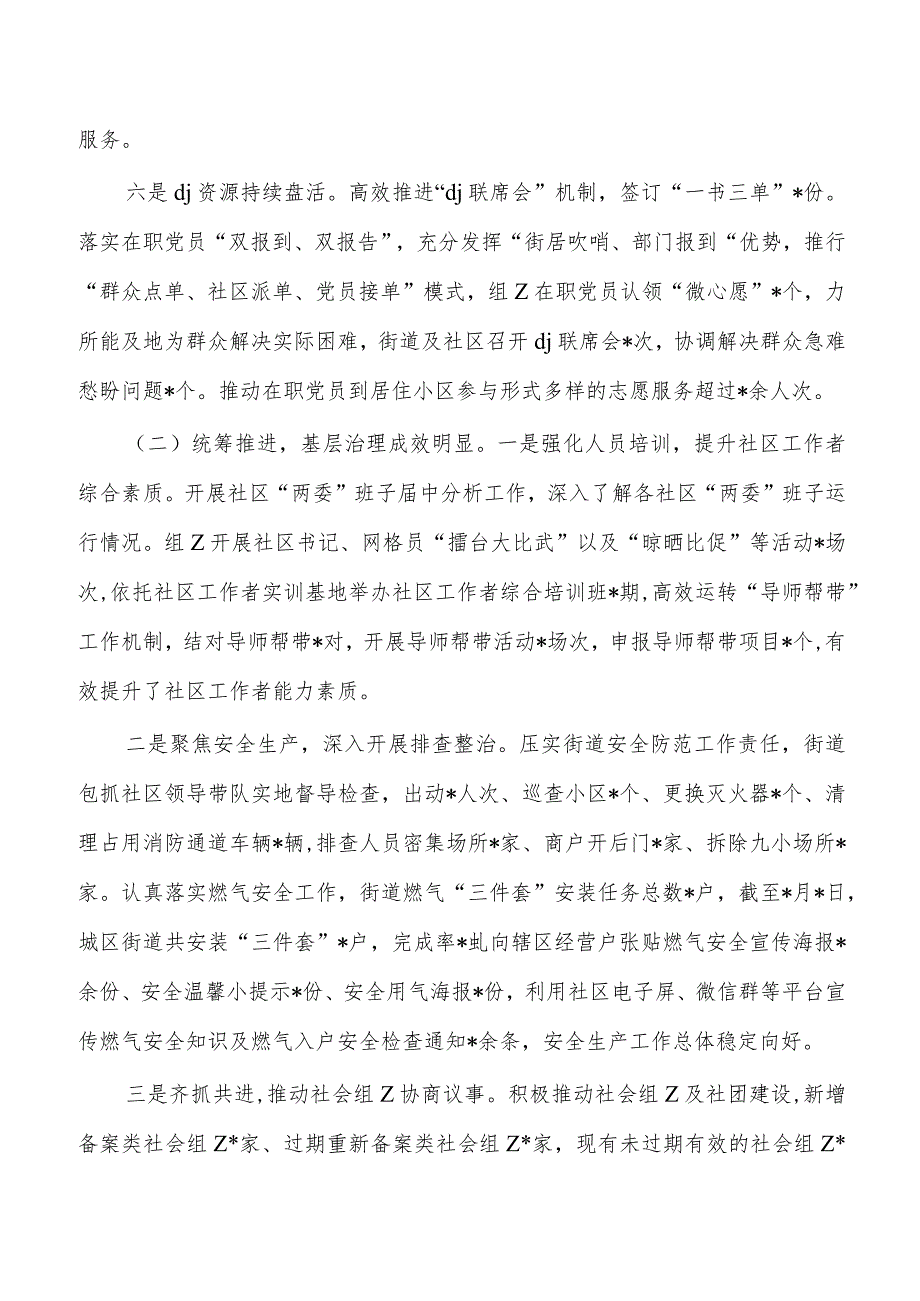 服务。
六是 dj 资源持续盘活。高效推进“dj 联席会”机制，签订“一书三单”*份。
落实在职党员“双报到、双报告”，充分发挥“街居吹哨、部门报到“优势，推行
“群众点单、社区派单、党员接单”模式，组 Z 在职党员认领“微心愿”*个，力
所能及地为群众解决实际困难，街道及社区召开 dj 联席会*次，协调解决群众急难
愁盼问题*个。推动在职党员到居住小区参与形式多样的志愿服务超过*余人次。
（二）统筹推进，基层治理成效明显。一是强化人员培训，提升社区工作者
综合素质。开展社区“两委”班子届中分析工作，深入了解各社区“两委”班子运
行情况。组 Z 开展社区书记、网格员“擂台大比武”以及“晾晒比促”等活动*场
次,依托社区工作者实训基地举办社区工作者综合培训班*期,高效运转“导师帮带”
工作机制，结对导师帮带*对，开展导师帮带活动*场次，申报导师帮带项目*个,有
效提升了社区工作者能力素质。
二是聚焦安全生产，深入开展排查整治。压实街道安全防范工作责任，街道
包抓社区领导带队实地督导检查，出动*人次、巡查小区*个、更换灭火器*个、清
理占用消防通道车辆*辆,排查人员密集场所*家、商户开后门*家、拆除九小场所*
家。认真落实燃气安全工作，街道燃气“三件套”安装任务总数*户，截至*月*日，
城区街道共安装“三件套”*户，完成率*虬向辖区经营户张贴燃气安全宣传海报*
余份、安全温馨小提示*份、安全用气海报*份，利用社区电子屏、微信群等平台宣
传燃气安全知识及燃气入户安全检查通知*余条，安全生产工作总体稳定向好。
三是齐抓共进,推动社会组 Z 协商议事。积极推动社会组 Z 及社团建设,新增
备案类社会组 Z*家、过期重新备案类社会组 Z*家，现有未过期有效的社会组 Z*